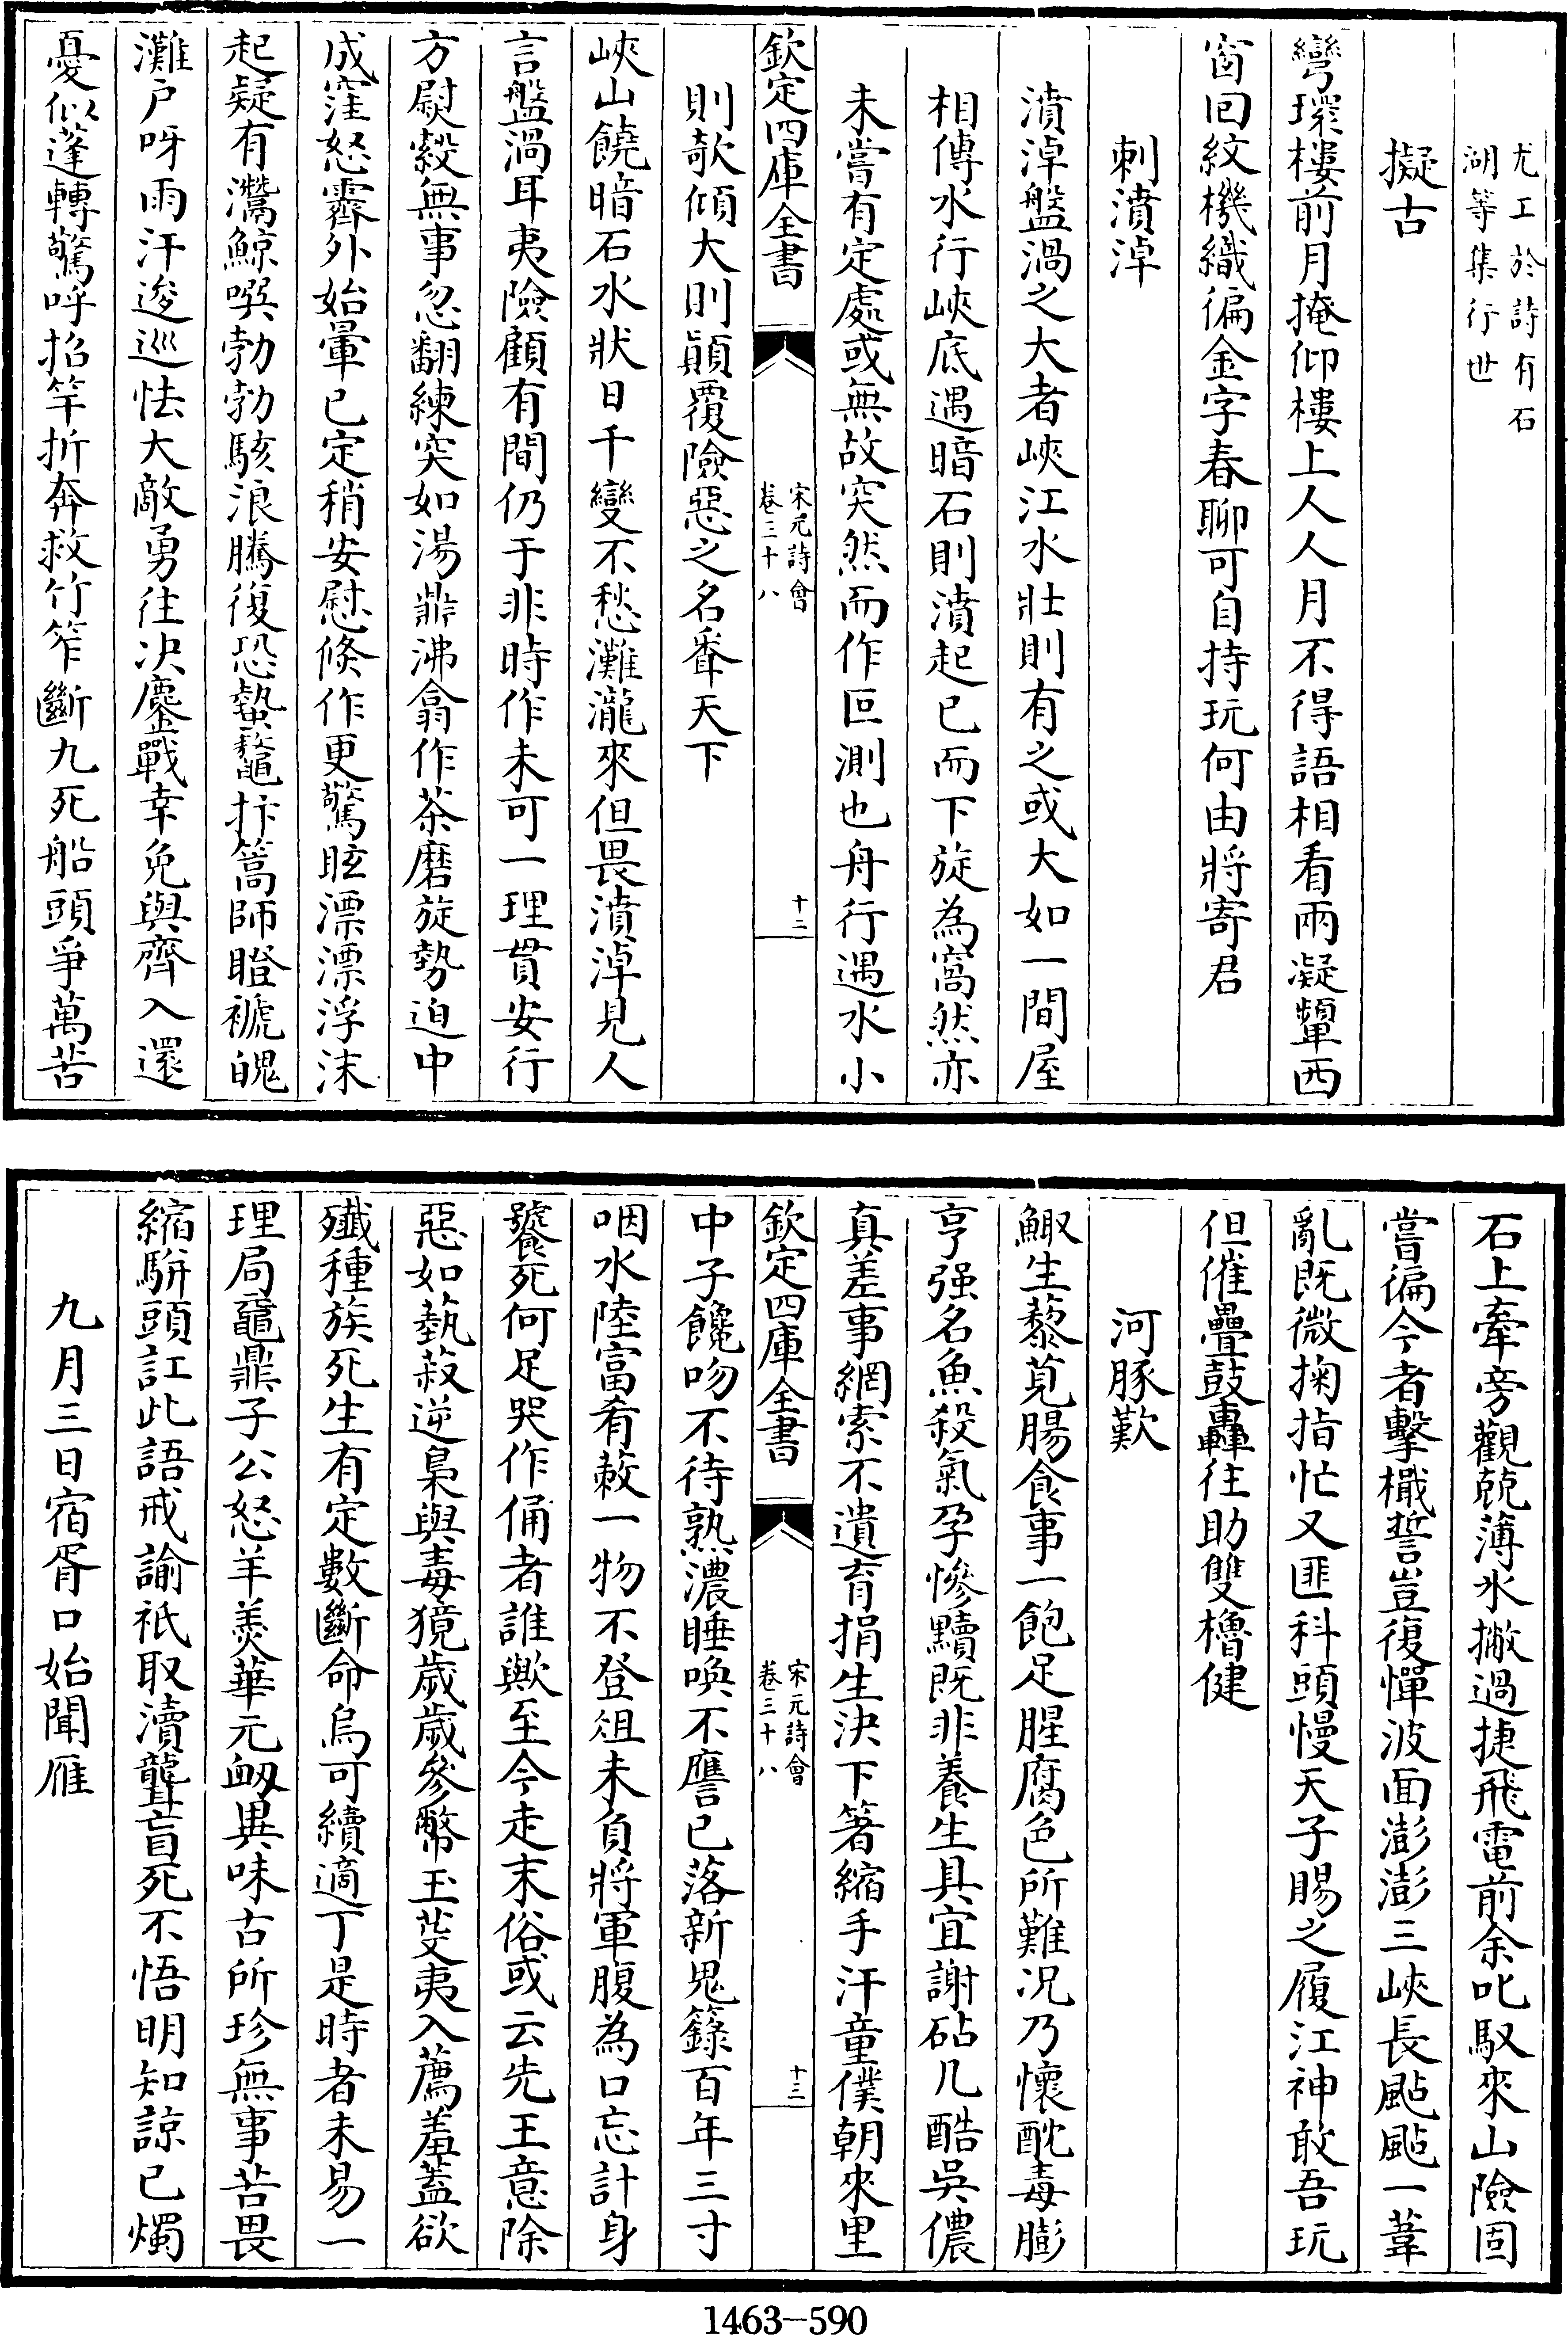 尤工於詩有石
湖等集行世
擬古
彎環樓前月掩仰樓上人人月不得語相看兩凝顰西
窗回紋機織徧金字春聊可自持玩何由將寄君
刺濆淖
濆淖盤渦之大者峽江水壯則有之或大如一間屋
相傳水行峽底遇暗石則濆起已而下旋為窩然亦
未嘗有定處或無故突然而作叵測也舟行遇水小
欽定四庫全書
宋元詩會
卷三十八
十二
則欹傾大則顛覆險惡之名聞天下
峽山饒暗石水狀日千變不愁灘瀧來但畏濆淖見人
言盤渦耳夷險顧有間仍于非時作未可一理貫安行
方熨縠無事忽翻練突如湯鼎沸翕作茶磨旋勢迫中
成窪怒霽外始暈已定稍安慰倏作更驚眩漂漂浮沫
起疑有濳鯨噀勃勃駭浪騰復恐蟄鼇抃篙師瞪褫魄
灘户呀雨汗逡巡怯大敵勇往决鏖戰幸免與齊入還
憂似蓬轉驚呼招竿折奔救竹笮斷九死船頭爭萬苦
石上牽旁觀兢薄氷撇過捷飛電前余叱馭來山險固
嘗徧今者擊檝誓豈復憚波面澎澎三峽長颭颭一葦
亂既微掬指忙又匪科頭慢天子賜之履江神敢吾玩
但催疊鼓轟往助雙櫓健
河豚歎
鯫生藜莧腸食事一飽足腥腐色所難况乃懷酖毒膨
亨强名魚殺氣孕慘黷既非養生具宜謝砧几酷吳儂
真差事網索不遺育捐生決下箸縮手汗童僕朝來里
欽定四庫全書
宋元詩會
卷三十八
十三
中子饞吻不待熟濃睡喚不譍已落新鬼籙百年三寸
咽水陸富肴蔌一物不登俎未負將軍腹為口忘計身
饕死何足哭作俑者誰歟至今走末俗或云先王意除
惡如蓺菽逆梟與毒獍歲歲參幣玉芟夷入薦羞蓋欲
殲種族死生有定數斷命烏可續適丁是時者未易一
理局黿鼎子公怒羊羮華元衂異味古所珍無事苦畏
縮駢頭訌此語戒諭祇取瀆聾盲死不悟明知諒已燭
九月三日宿胥口始聞雁
1463-590